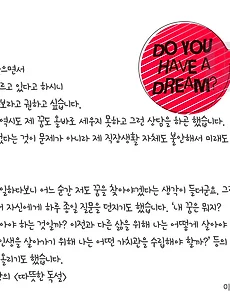 DO YOU
HAVE A
DREAM?
으면서
르고 있다고 하시니
보라고 권하고 싶습니다.
역시도 제 꿈도 올바로 세우지 못하고 그런 상담을 하곤 했습니다.
없다는 것이 문제가 아니라 제 직장생활 자체도 불안해서 미래도
일하다보니 어느 순간 저도 꿈을 찾아야겠다는 생각이 들더군요. 그
서 자신에게 하루 종일 질문을 던지기도 했습니다. '내 꿈은 뭐지?
아야 하는 것일까? 이전과 다른 삶을 위해 나는 어떻게 살아야
인생을 살아가기 위해 나는 어떤 가치관을 수립해야 할까?' 등의
올리기도 했습니다.
의 《따뜻한 독설》
이